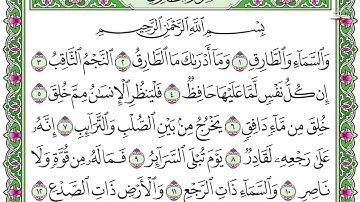 بِسْمِ اللَّهِ الرَّحْمَٰنِ الرَّحِيمِ
وَالسَّمَاءِ وَالطَّارِقِ ١ وَمَا أَدْرَاكَ مَا الطَّارِقُ ٢ النَّجْمُ الثَّاقِبُ ٣
إِن كُلُّ نَفْسٍ لَّمَّا عَلَيْهَا حَافِظٌ ٤ فَلْيَنظُرِ الْإِنسَانُ مِمَّ خُلِقَ ٥
خُلِقَ مِن مَّاءٍ دَافِقٍ ٦ يَخْرُجُ مِن بَيْنِ الصُّلْبِ وَالتَّرَائِبِ ٧ إِنَّهُ
عَلَىٰ رَجْعِهِ لَقَادِرٌ ٨ يَوْمَ تُبْلَى السَّرَائِرُ ٩ فَمَا لَهُ مِن قُوَّةٍ وَلَا
نَاصِرٍ ١٠ وَالسَّمَاءِ ذَاتِ الرَّجْعِ ١١ وَالْأَرْضِ ذَاتِ الصَّدْعِ ١٢